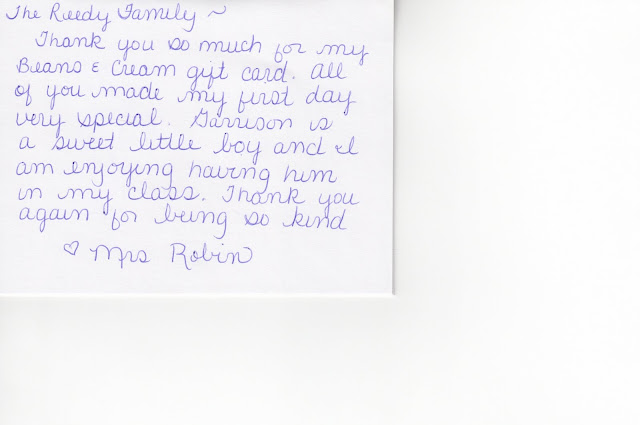 The Reedy Family ~
Thank you so much for my
Beans & Cream gift card. All
of you made my first day
very special. Garrison is
a sweet little boy and I
am enjoying having him
in my class. Thank you
again for being so kind
♡ Mrs Robin